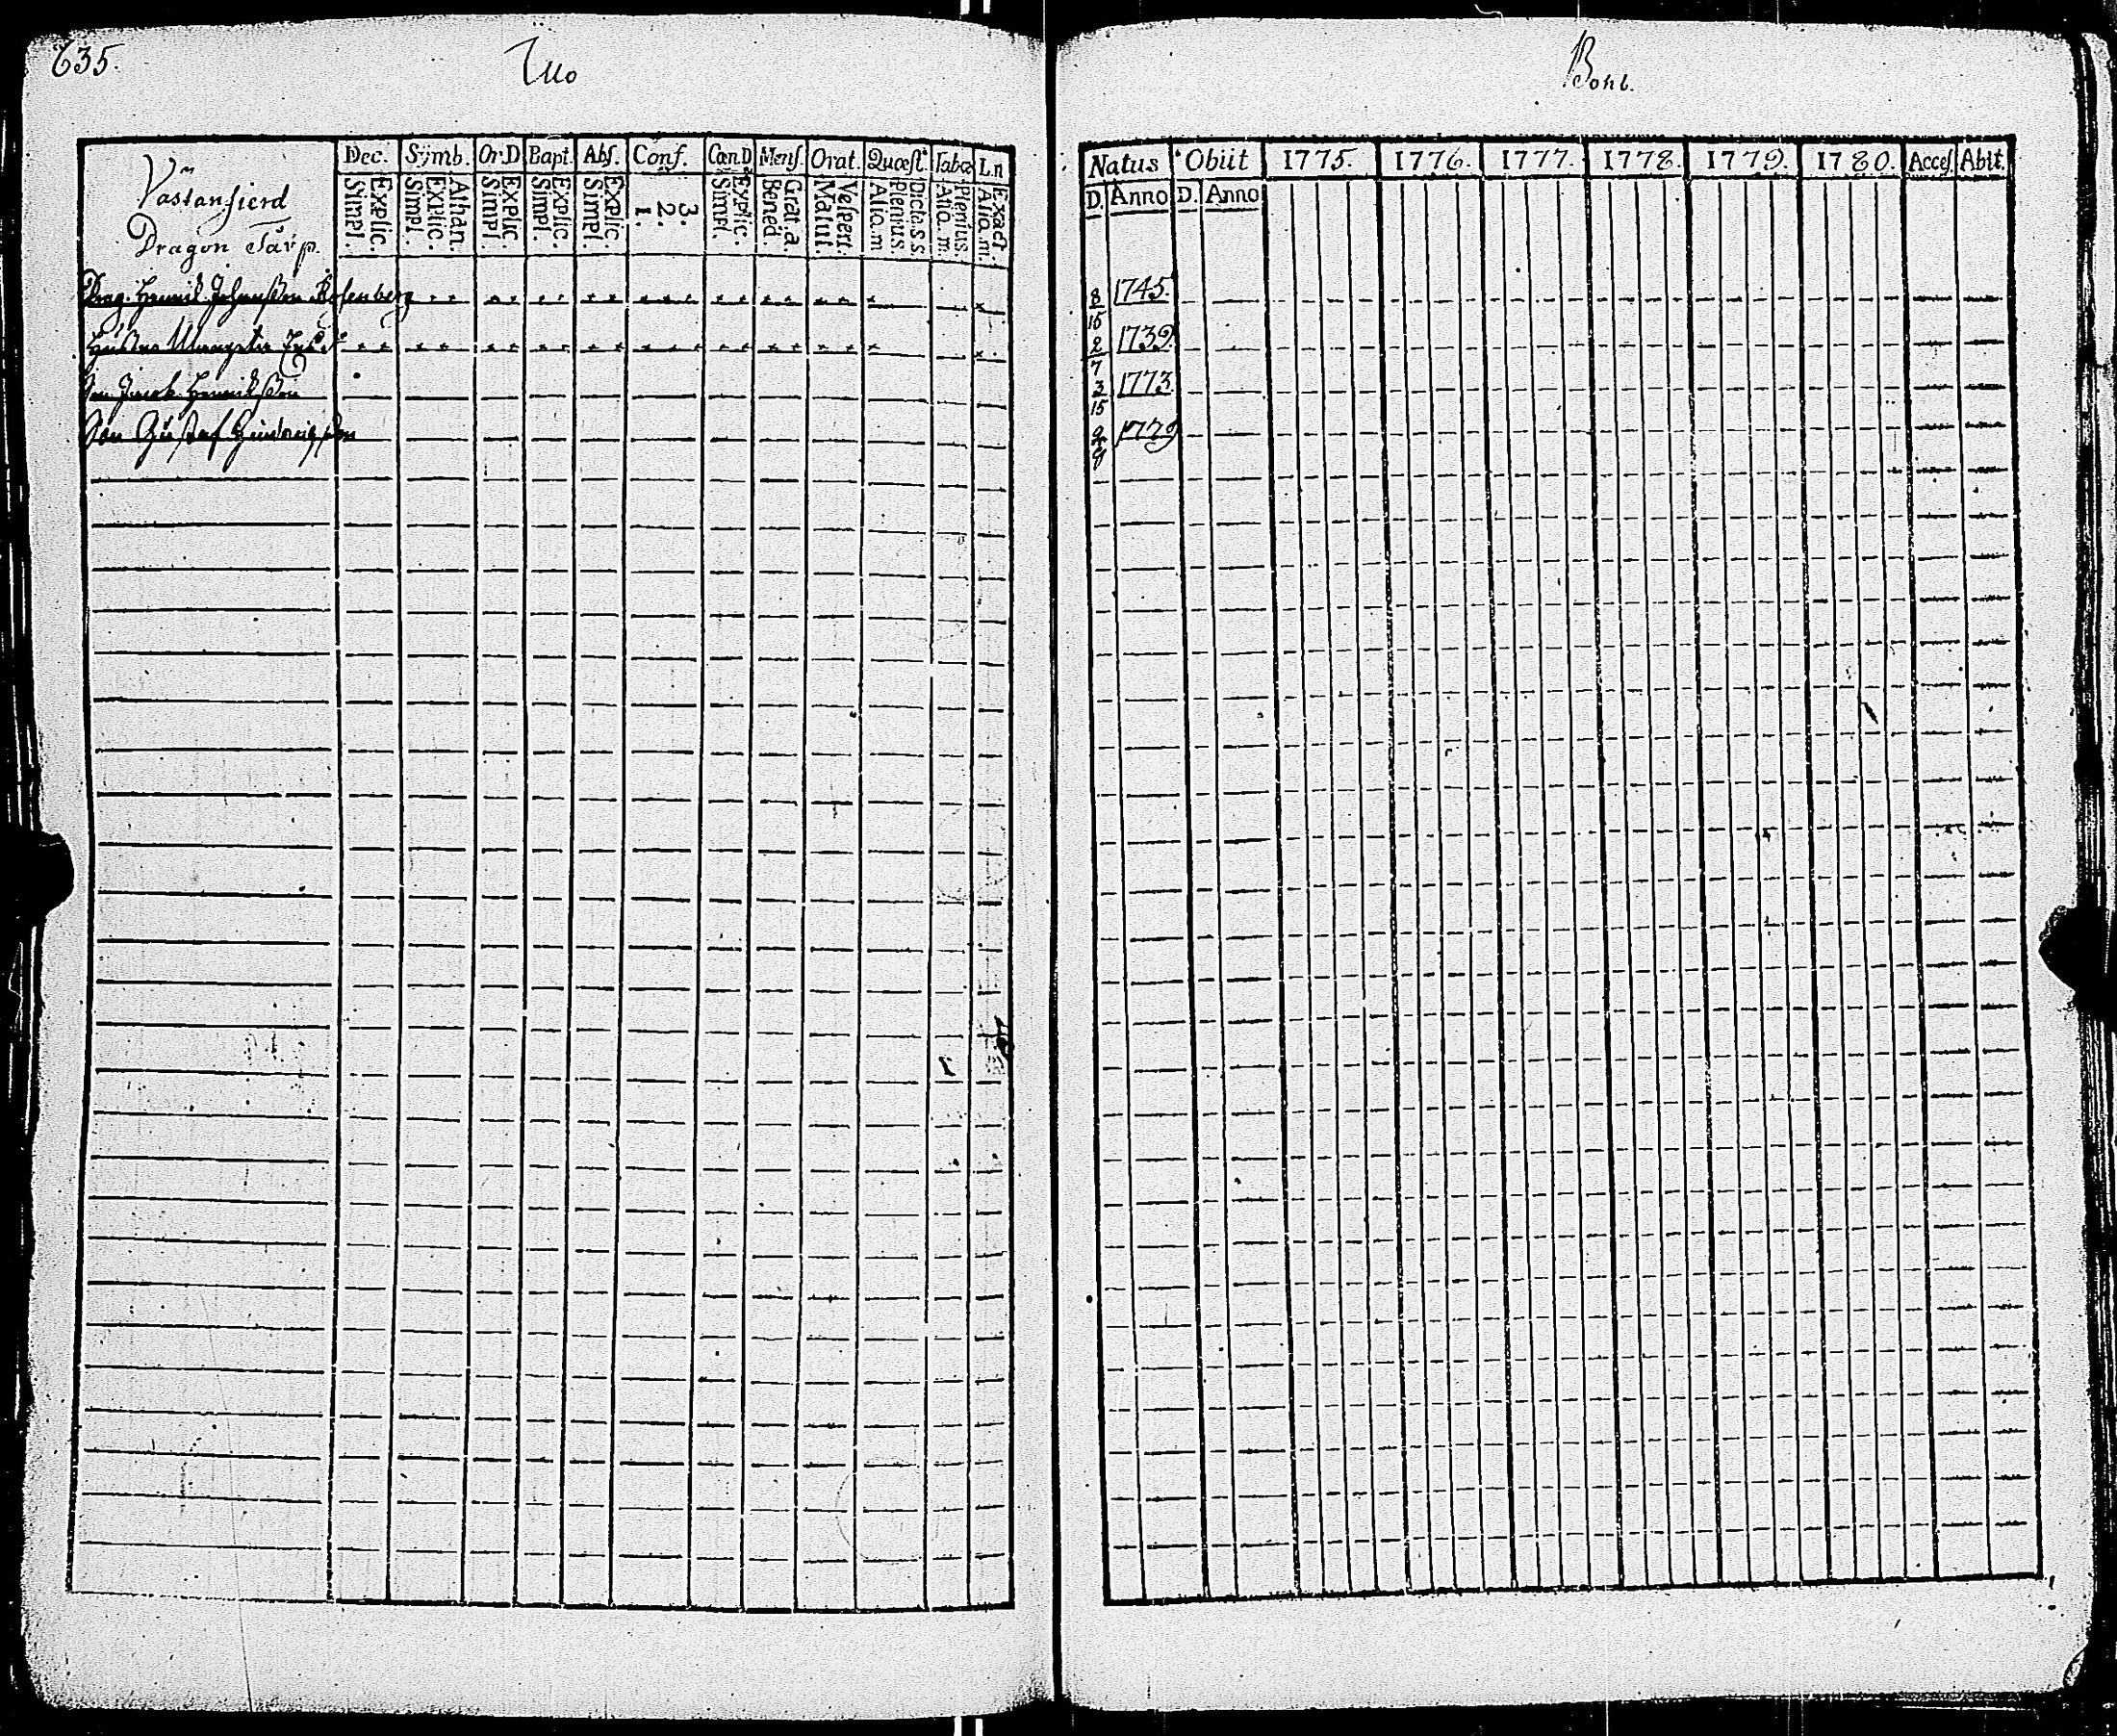 635.
Tuo
Västanfierd
Dragon Tårp.
Dec. Symb. Or.D Bapt. Abſ. Conf. Cœn.D Menſ. Orat. Quœſt. Tabœ Ln
Explic. Simpl. Athan. Explic. Simpl. Explic. Simpl. Explic. Simpl. Explic. Simpl. 3. 2. 1. Explic. Simpl. Grat. a. Bened. Veſpert. Matut. Dicta. s.s. Plenius. Alia. m Plenius. Alia. m. Exact. Alia. m.
Drag. Henrik Johanßon Roſenberg
Hustru
Son Jacob Henrikßon
Son Gustaf
Bohl.
Natus Obiit 1775. 1776. 1777. 1778. 1779. 1780. Acceſ. Abit
D. Anno D. Anno
8/15 1745.
2/7 1739.
3/15 1773.
1779